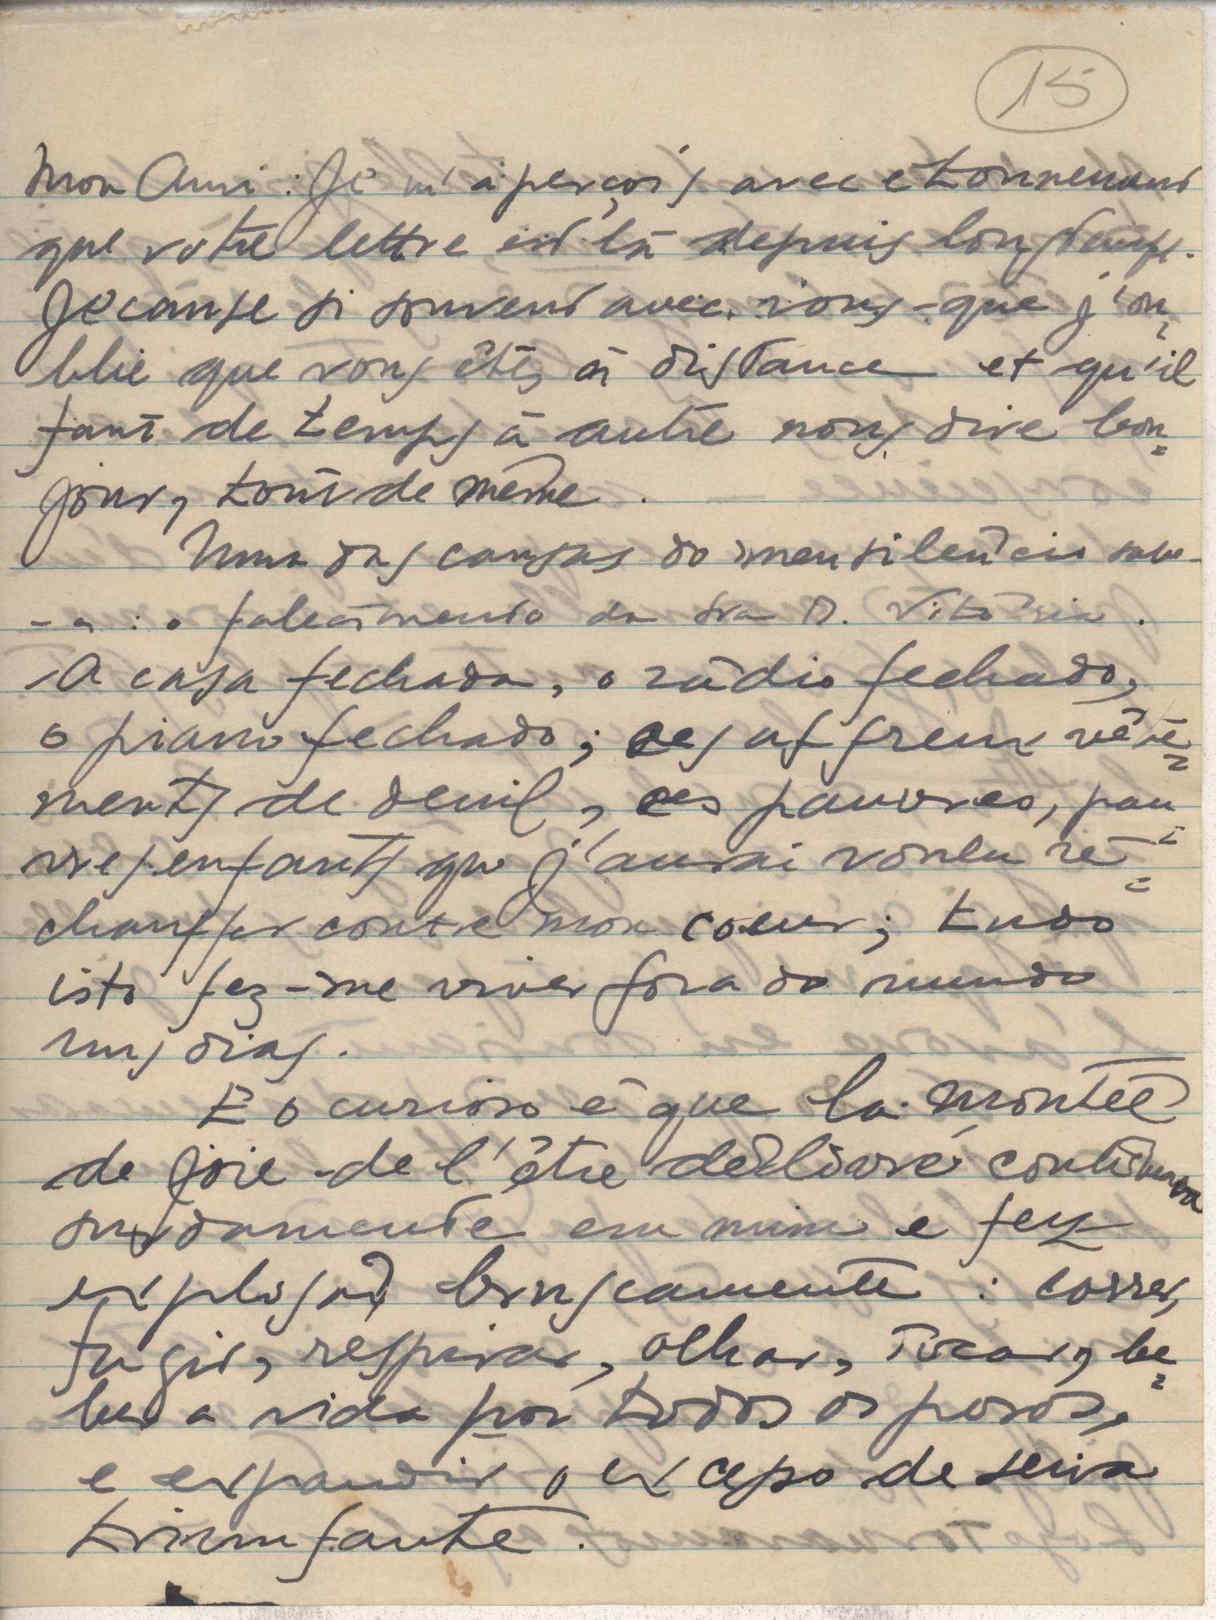 15
Mon Ami : Je m'aperçois avec etonnement
que votre lettre est là depuis longtemps.
Je cause si souvent avec vous - que j'ou=
blie que vous êtes à distance et qu'il
faut de temps à autre nous dire bon=
jour, tout de même.
Uma das causas do meu silêncio sabe-
-a : o falecimento da Sra D. Vitória.
A casa fechada, o rádio fechado,
o piano fechado; ces affreux vête=
ments de deuil, ces pauvres, pau=
vres enfants que j'aurai voulu ré=
chauffer contre mon coeur; tudo
isto fez-me viver fora do mundo
uns dias.
E o curioso é que la montée
de joie de l'être délivré continuava
surdamente em mim e fez
explosão bruscamente : correr,
fugir, respirar, olhar, tocar, be=
ber a vida por todos os poros,
e expandir o excesso de seiva
triunfante.